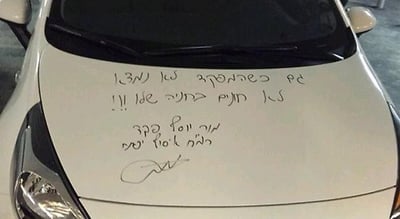 גם כשהמפקד לא נמצא
לא חונים בחניה שלו !!!
מור יוסף פקד
רמ"ח איסוף